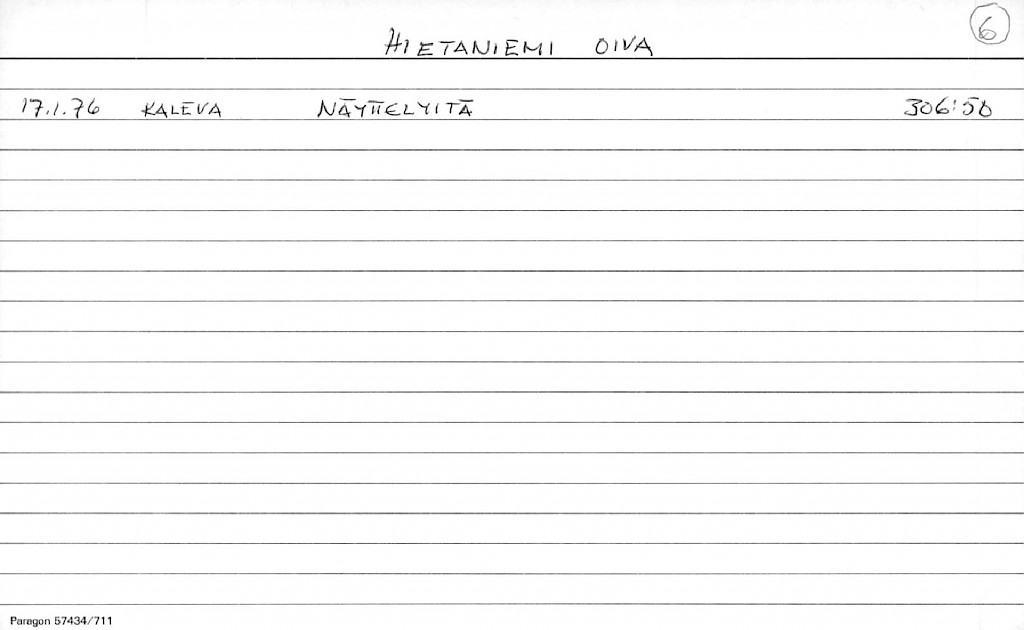 6
HIETANIEMI OIVA
17.1.76 KALEVA NÄYTTELYITÄ 306:50
Paragon 57434/711